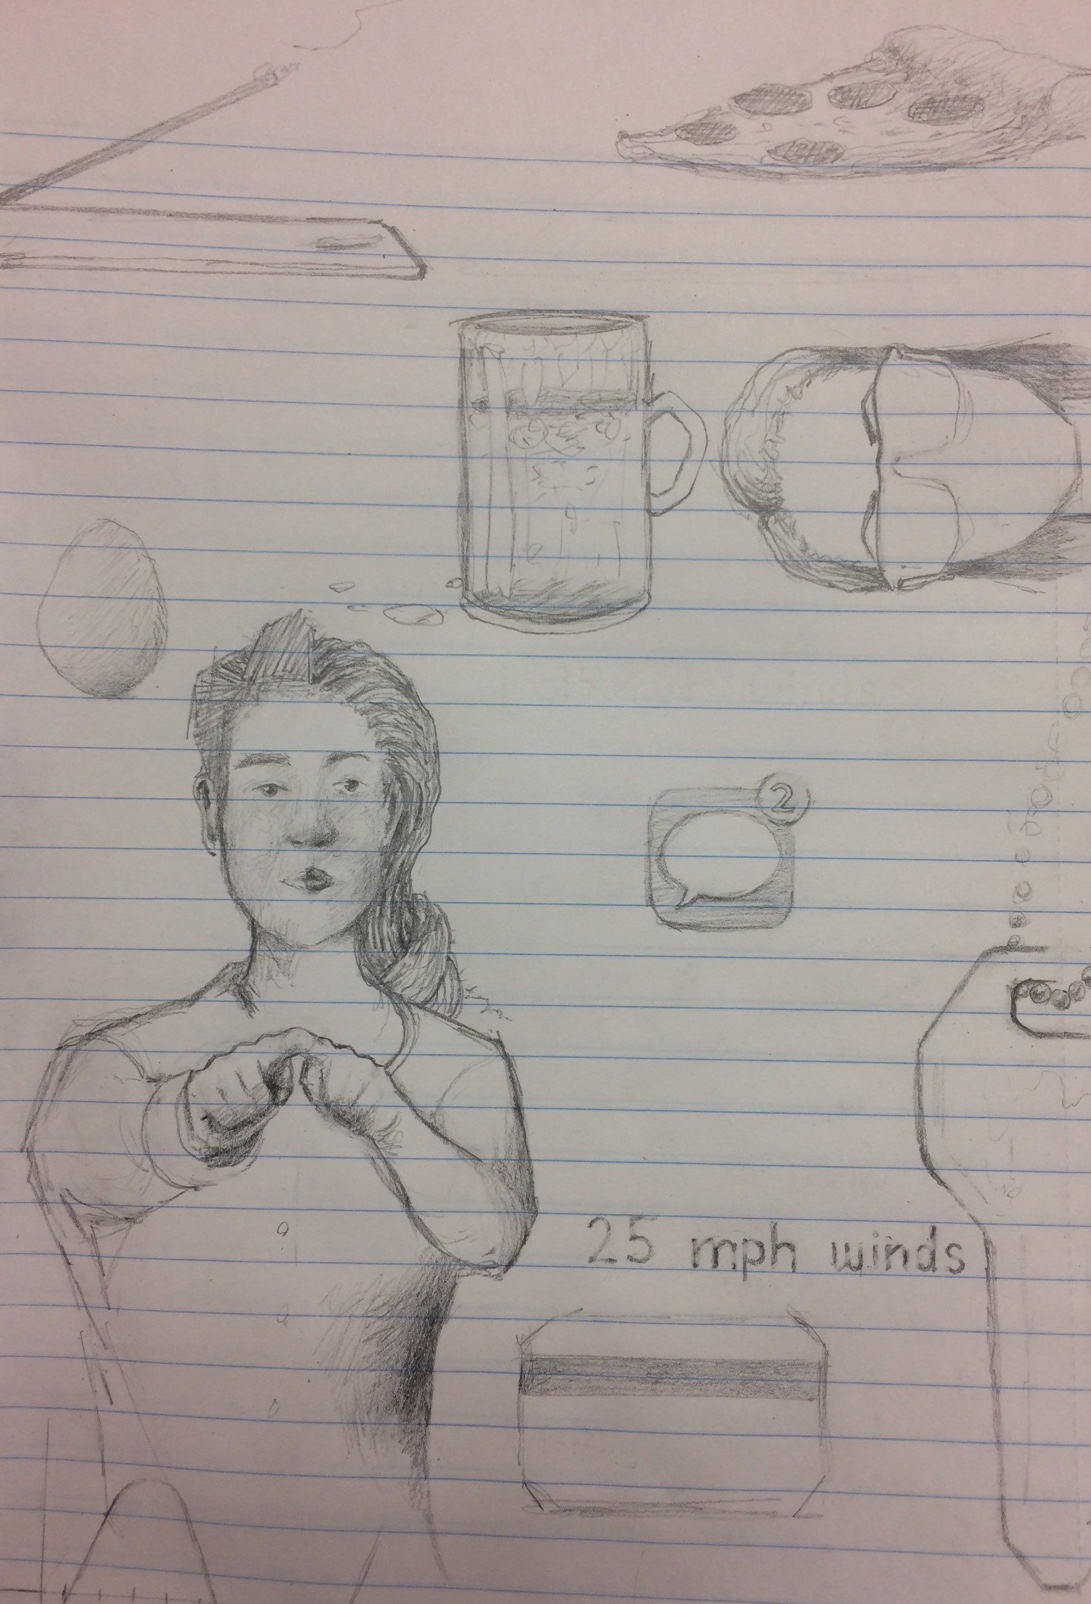 2
25 mph winds